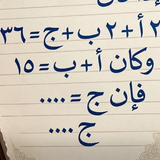 ٢أ+٢ب+ج=٣٦
وكان أ+ب=١٥
فإن ج=....
ج ....